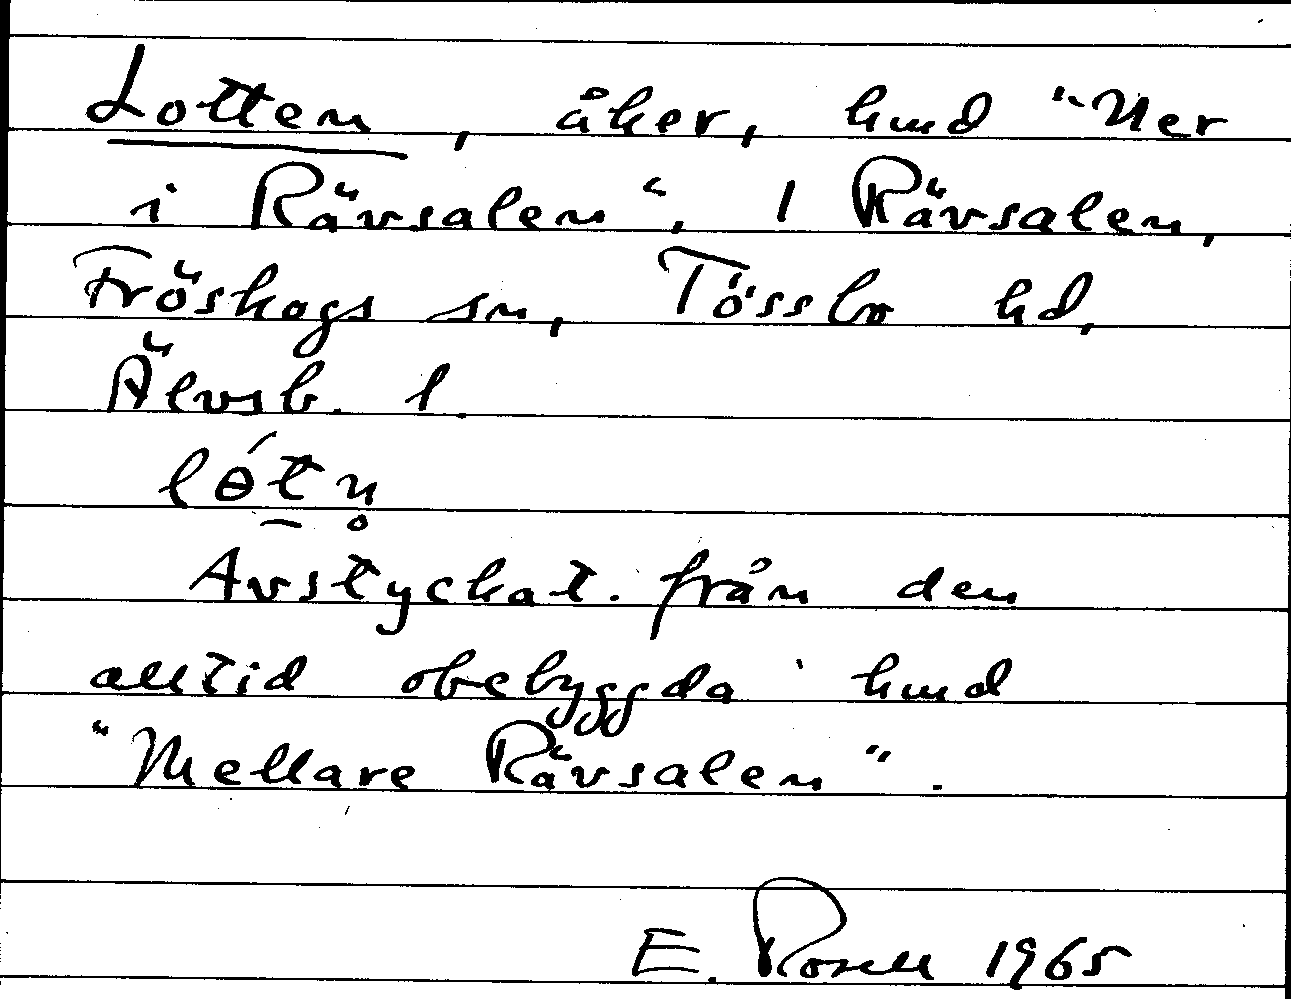 Lotten, åker, hmd "Ner
i Rävsalen", 1 Rävsalen,
Fröskogs sn, Tössbo hd,
Älvsb. l.
lɵ́t̲n̥
Avstyckat från den
alltid obebyggda hmd
"Mellare Rävsalen".
E. Rosell 1965